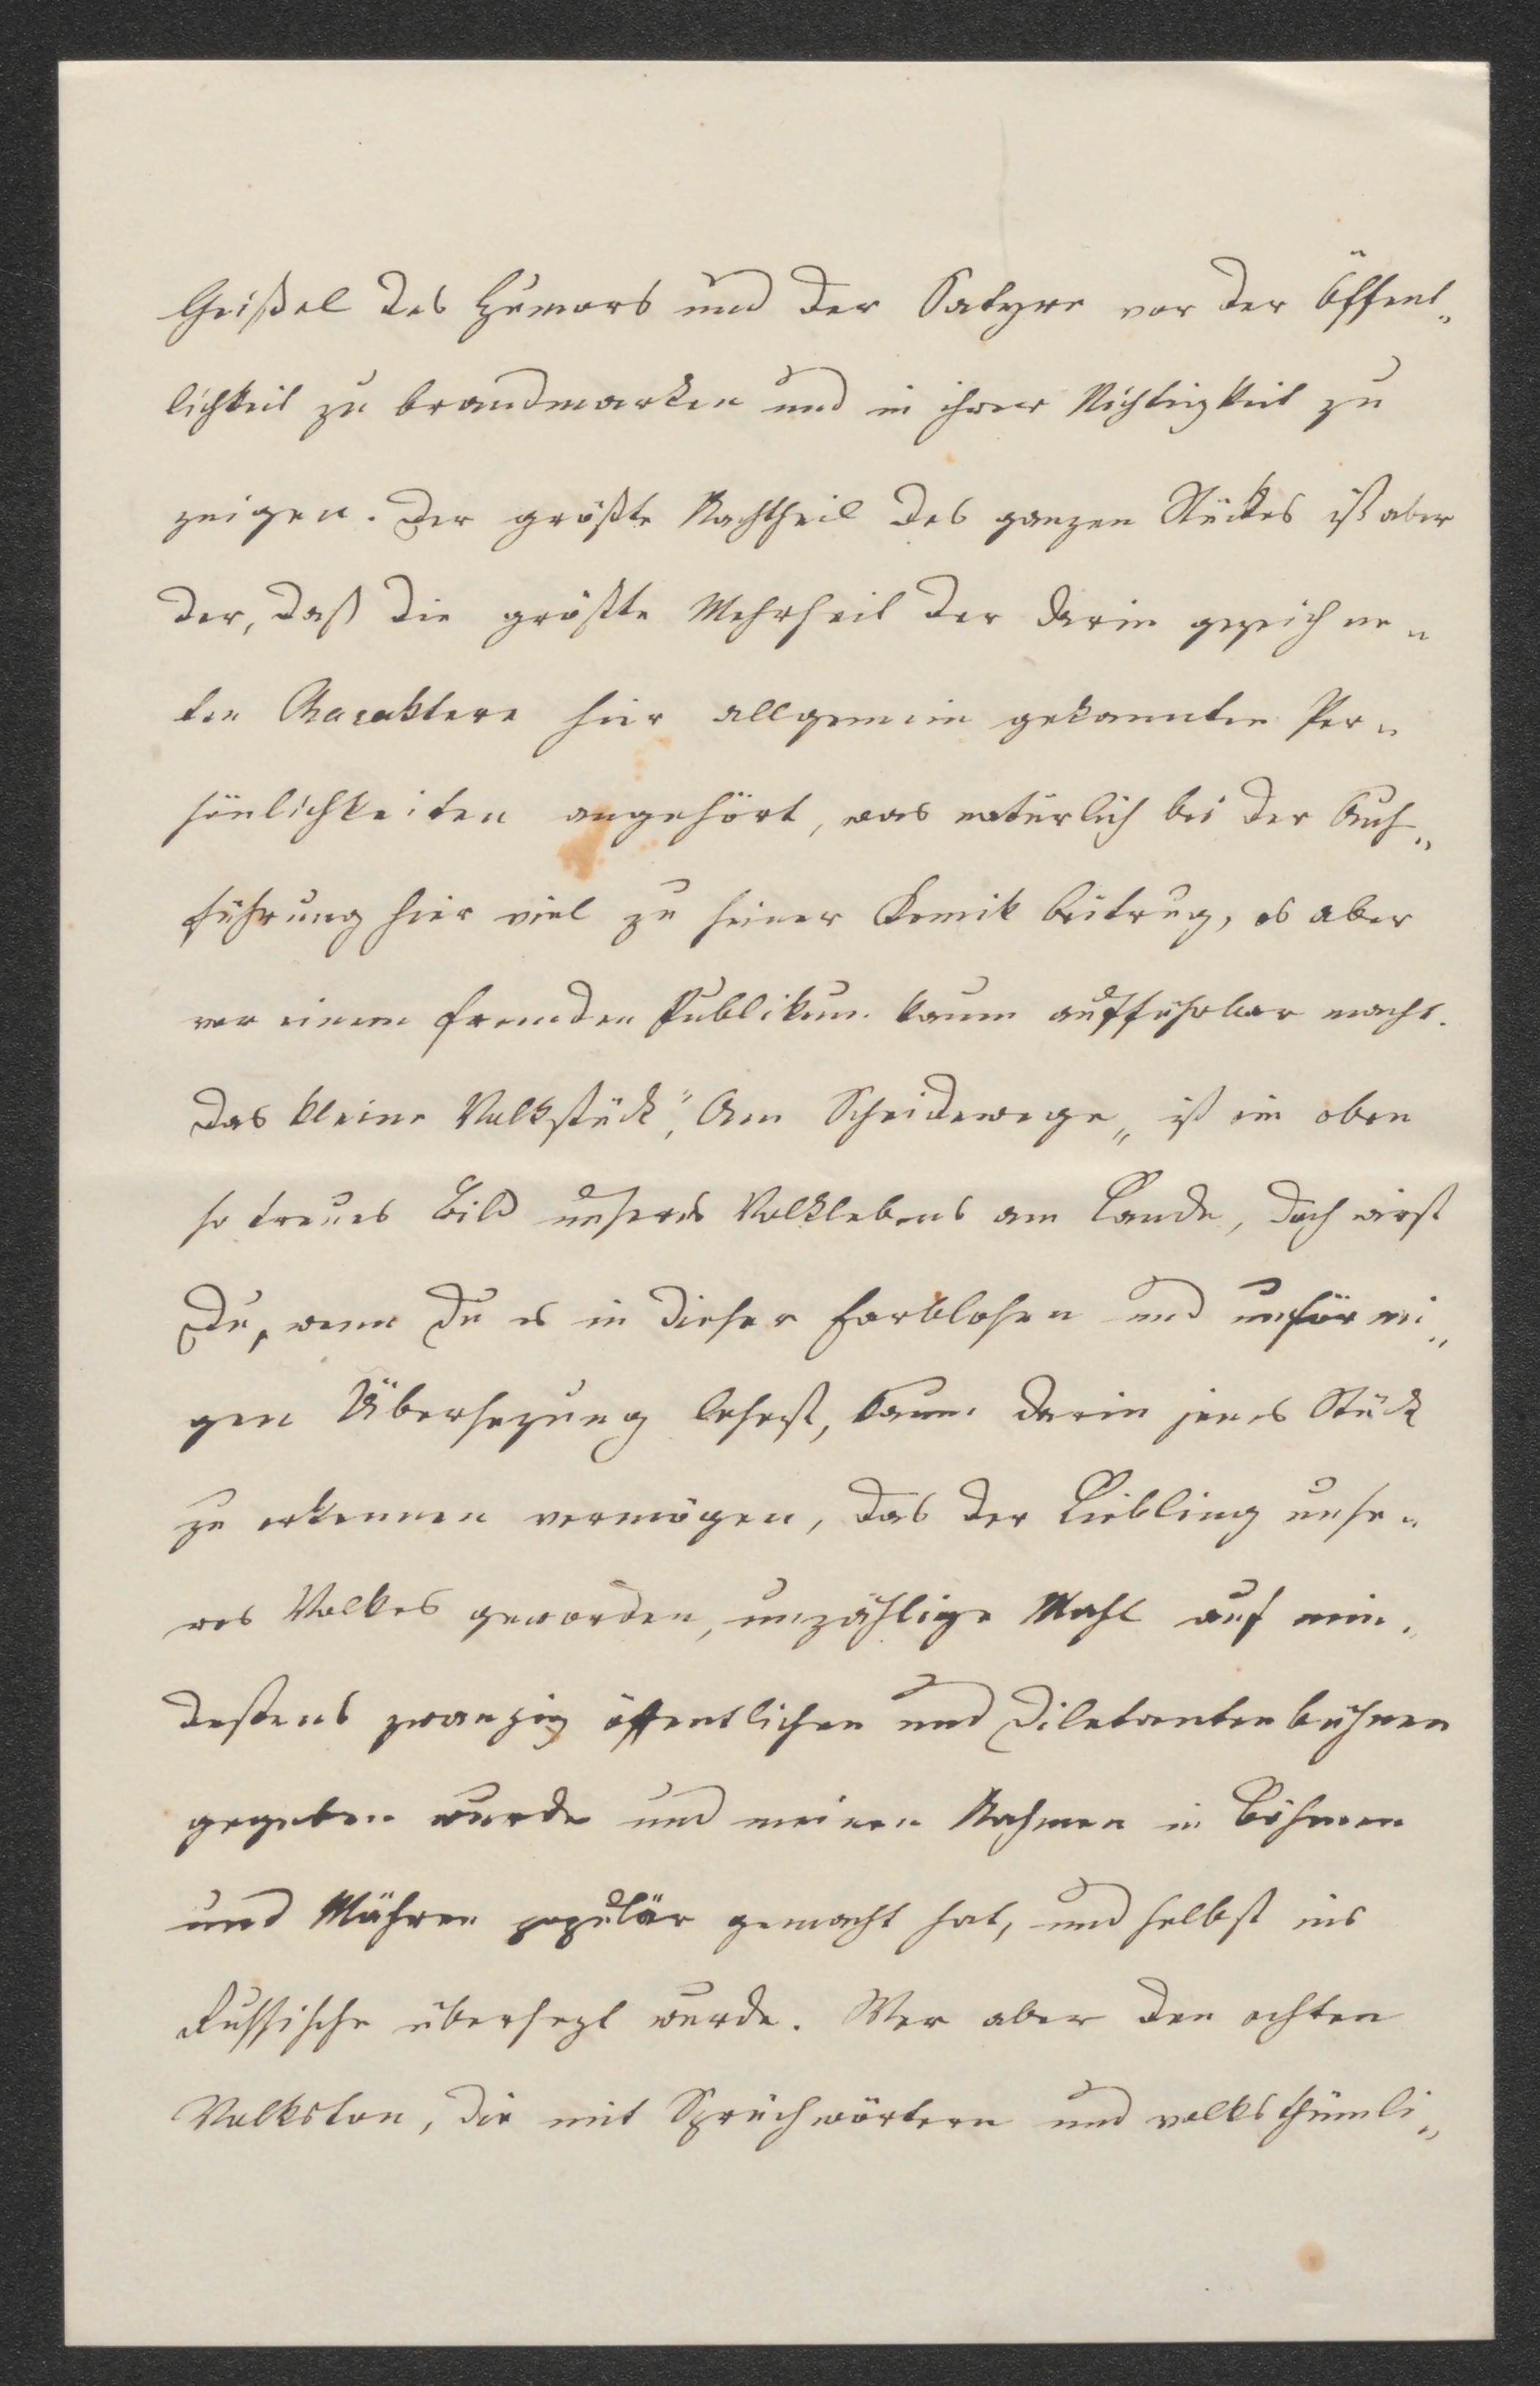 Geißel des Humors und der Satyre vor der Öffent„
lichkeit zu brandmarken und in ihrer Nichtigkeit zu
zeigen. Der größte Nachtheil des ganzen Stückes ist aber
der, daß die größte Mehrheil der darin gezeichne„
ten Charaktere hier allgemein gekannten Per„
sönlichkeiten angehört, was natürlich bei der Auf„
führung hier viel zu seiner Komik beitrug, es aber
vor einem fremden Publikum kaum aufführbar macht.
Das kleine Volkstück „Am Scheidewege„ ist ein eben
so treues Bild unseres Volklebens am Lande, doch wirst
Du, wenn Du es in dieser farblosen und unförmi„
gen Übersezung lesest, kaum darin jenes Stück
zu erkennen vermögen, das der Liebling unse„
res Volkes geworden, unzählige Mahl auf min„
destens zwanzig öffentlichen und Diletantenbühnen
gegeben wurde und meinen Nahmen in Böhmen
und Mähren populär gemacht hat, und selbst ins
Russische übersezt wurde. Wer aber den echten
Volkston, die mit Sprüchwörtern und volksthümli„